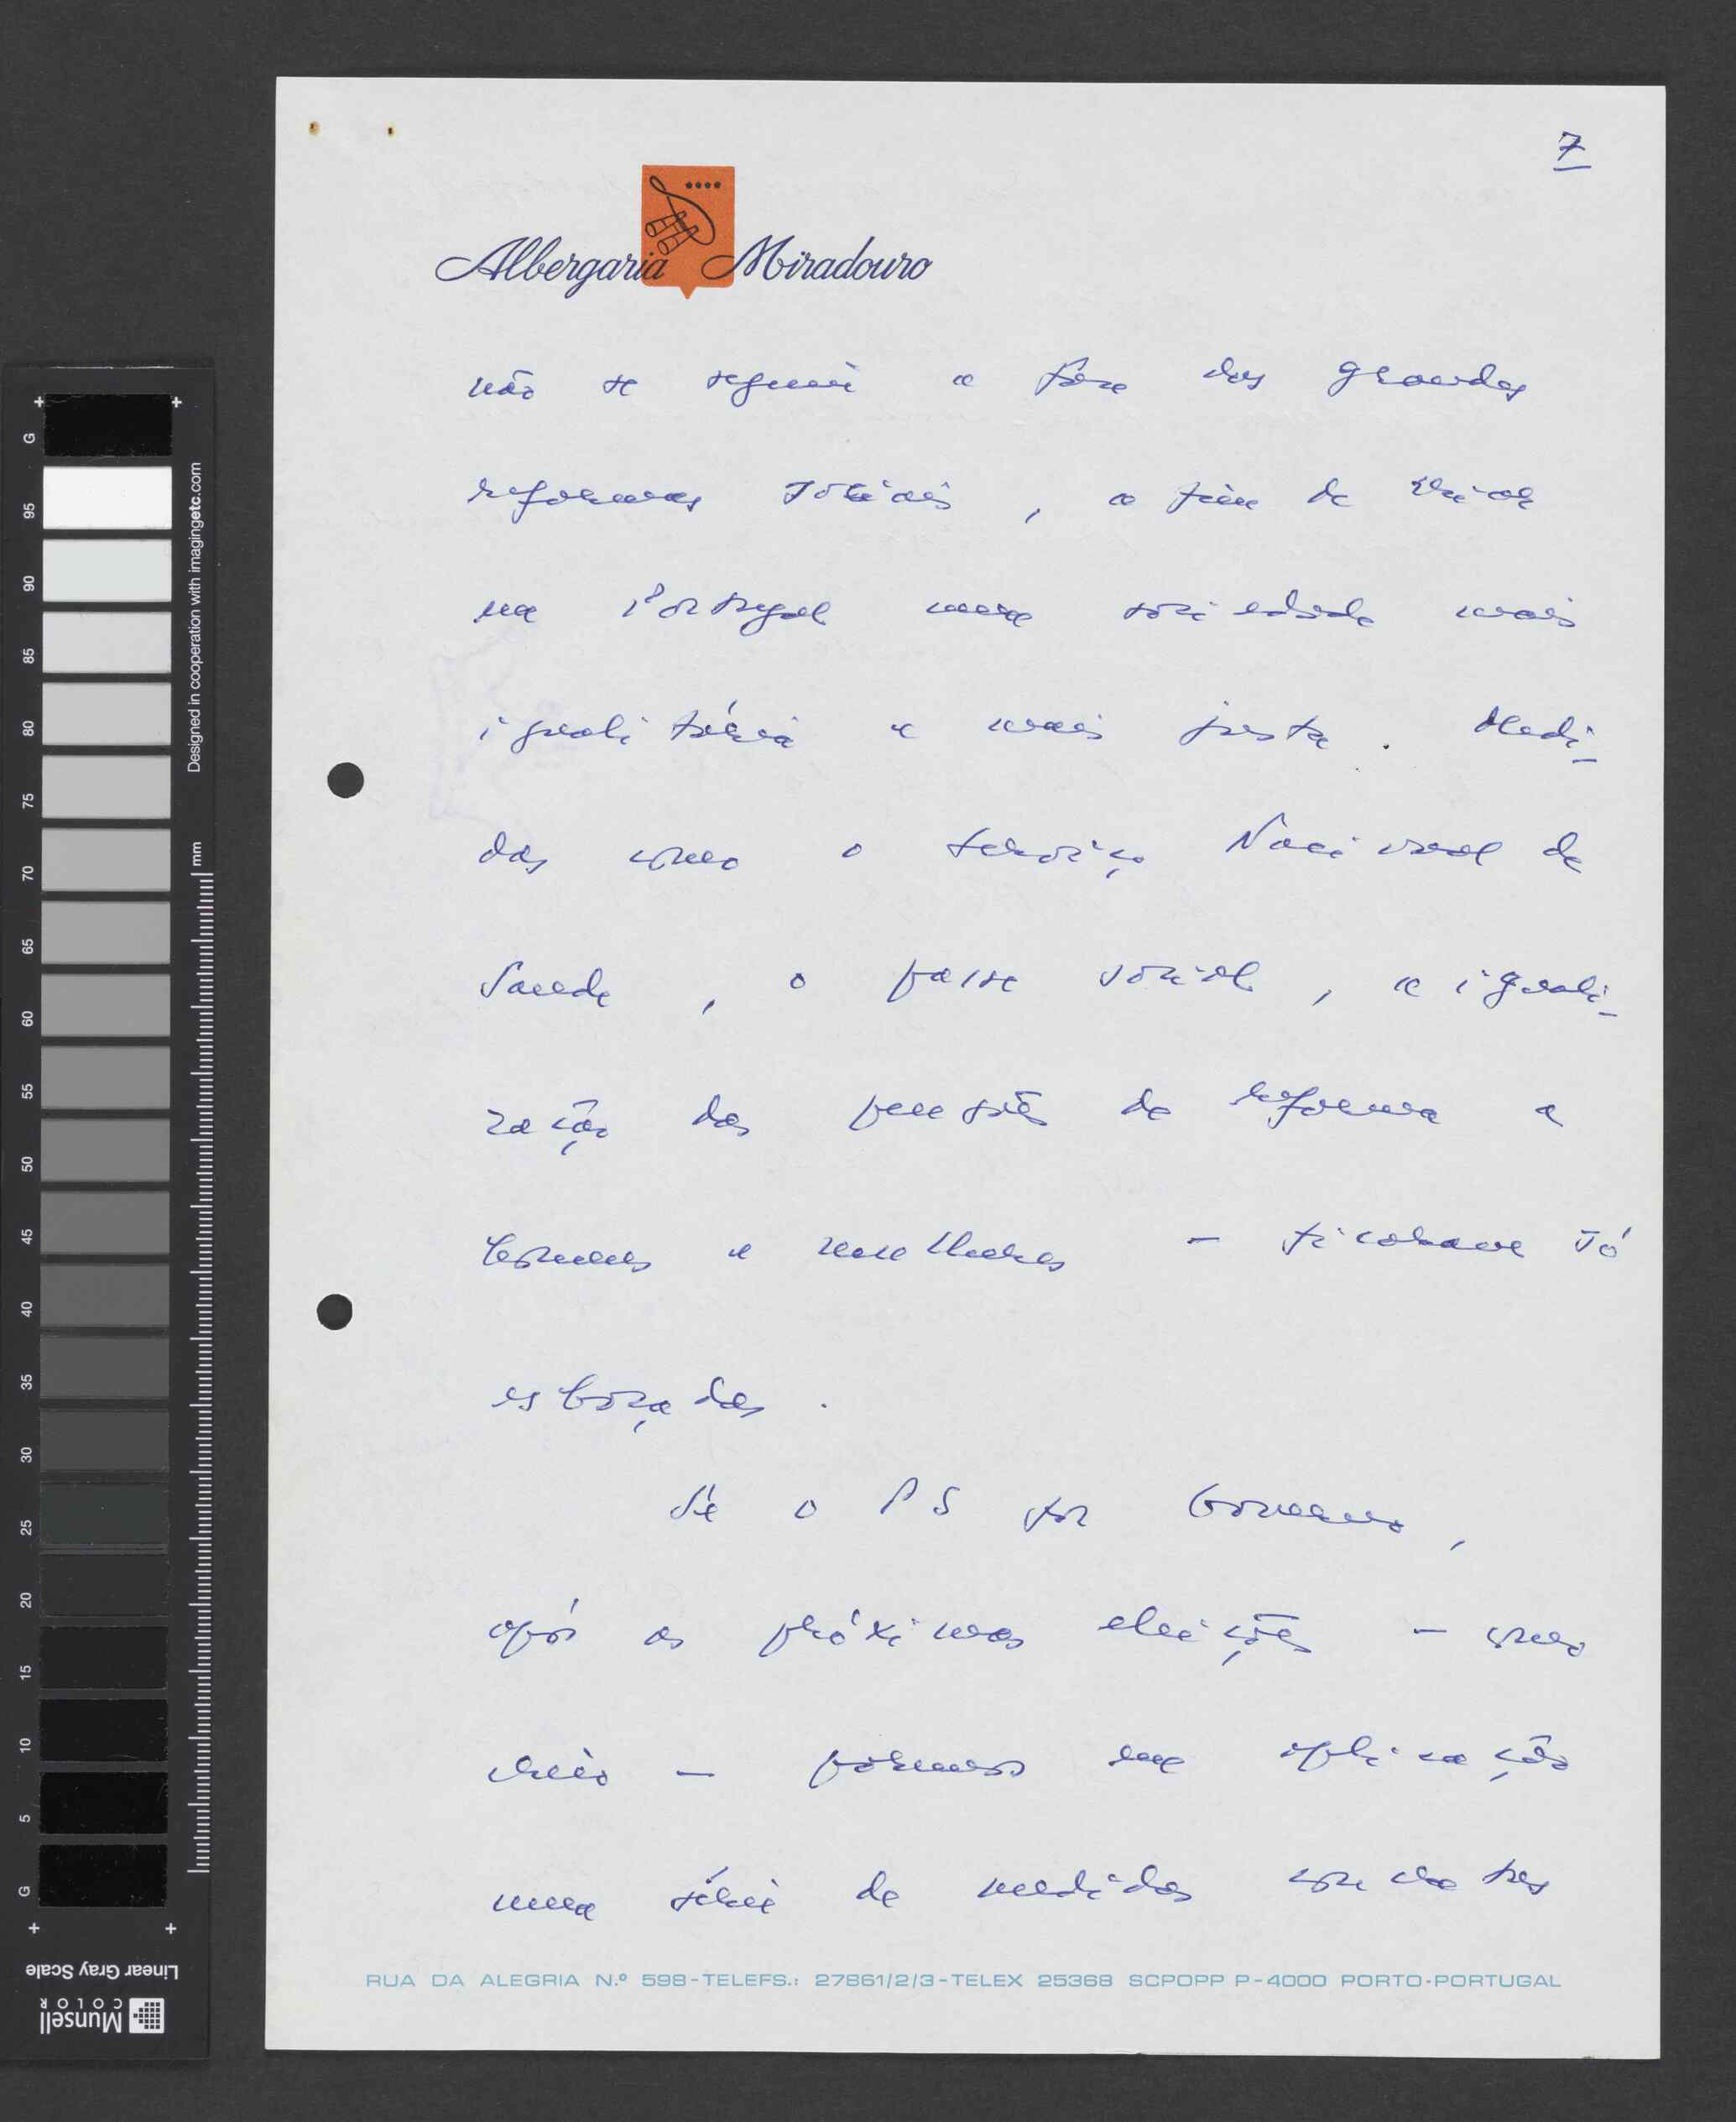 7
Albergaria Miradouro
não se seguiu a fase das grandes
reformas sociais, a fim de criar
em Portugal uma sociedade mais
igualitária e mais justa. Medi-
das como o Serviço Nacional de
Saude, o passe social, a iguali-
zação das pensões de reforma a
homens e mulheres - ficaram só
esboçadas.
Se o PS for Governo,
após as próximas eleições - como
creio - poremos em aplicação
uma série de medidas concretas
RUA DA ALEGRIA N.º 598-TELEFS.: 27861/2/3-TELEX 25368 SCPOPP P-4000 PORTO-PORTUGAL
G 95 90 85 80 75 70 65 60 55 50 45 40 35 30 25 20 15 10 5 G
Designed in cooperation with imagingetc.com
mm
Linear Gray Scale
Munsell
COLOR